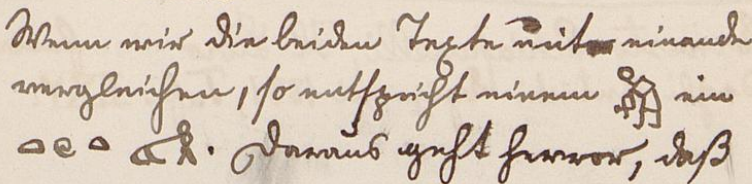 Wenn wir die beiden Texte mit einande
vergleichen, so entspricht einem ein
. Daraus geht hervor, daß